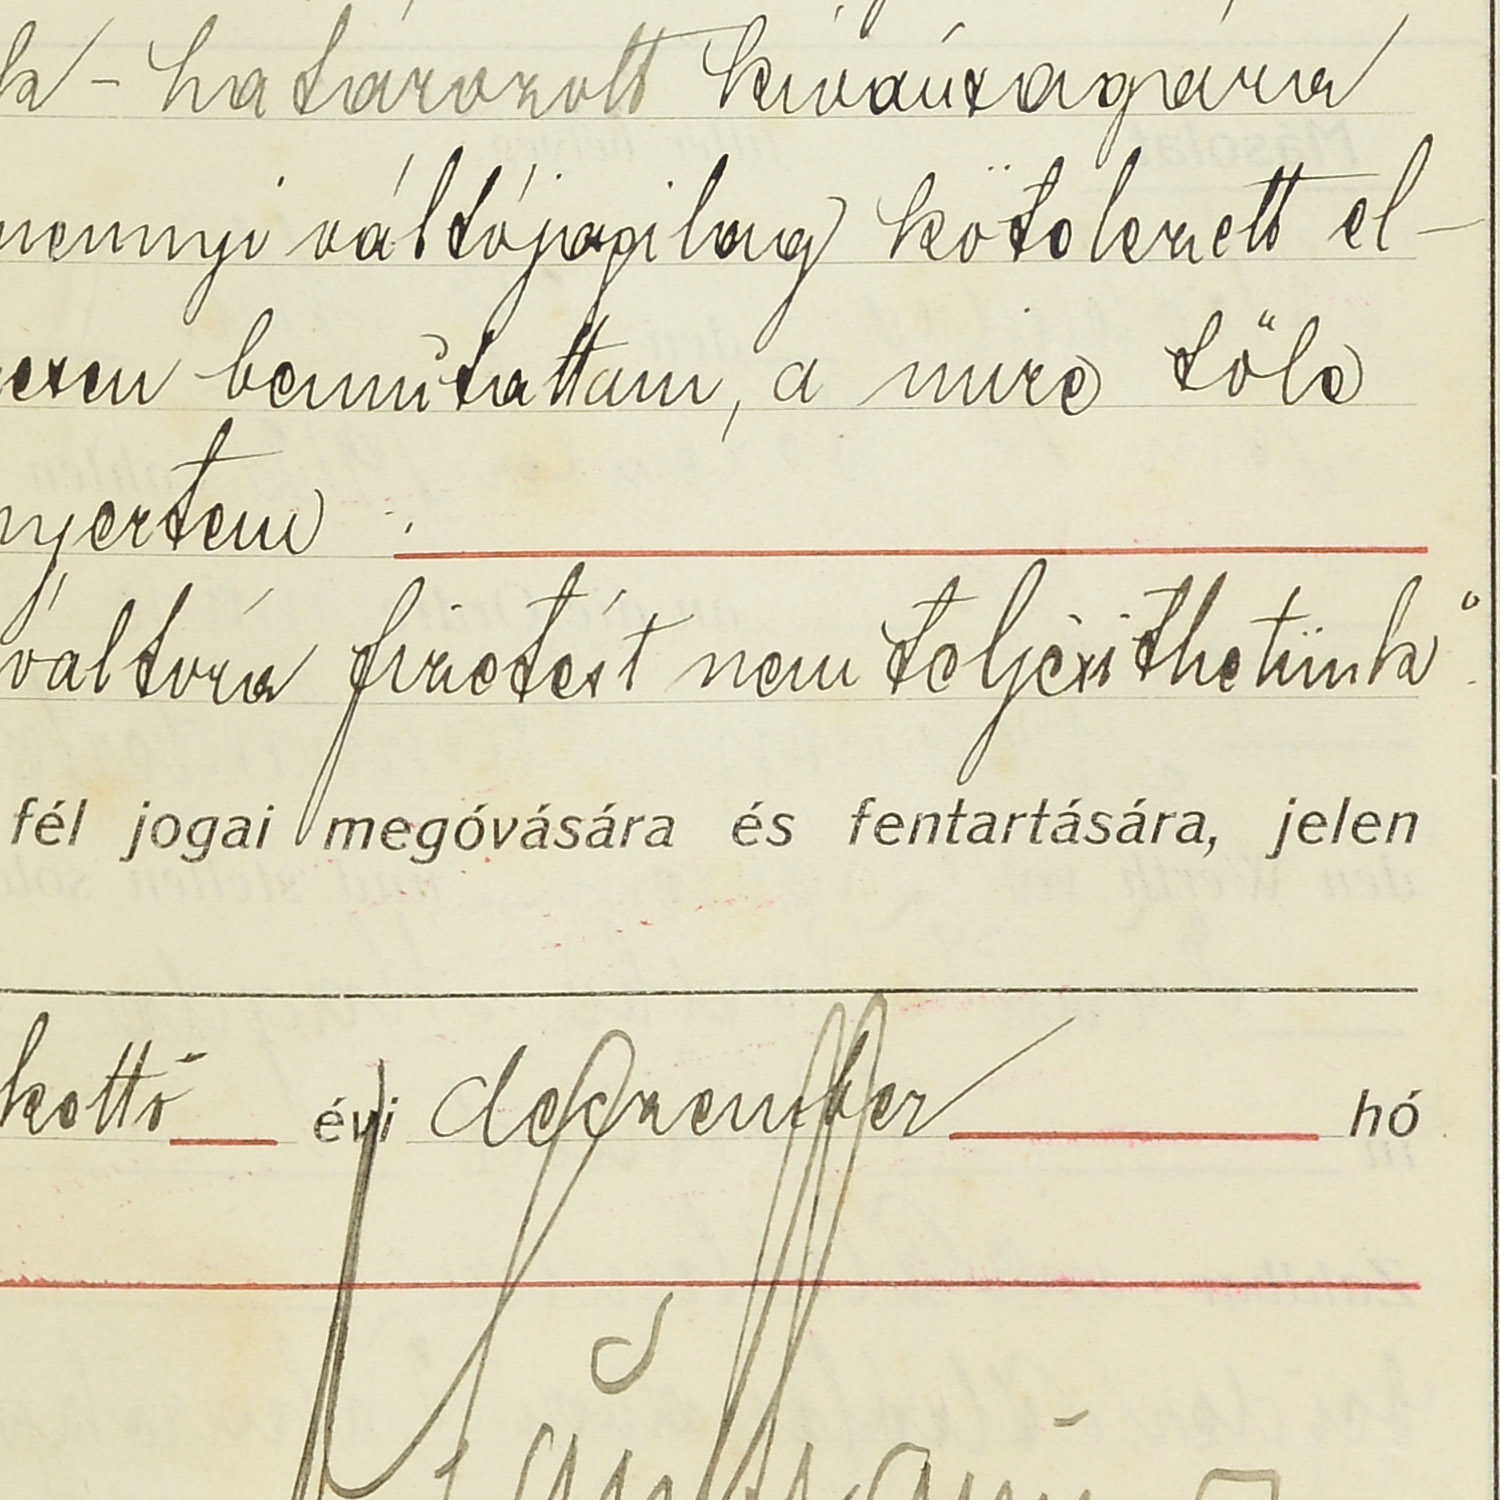 k - határozott kívánságára
mennyi váltójogilag kötelezett el-
ezen bemutattam, a mire tőle
nyertem :
váltóra fizetést nem teljesíthetünk"
fél jogai megóvására és fentartására, jelen
kettő évi deczember hó